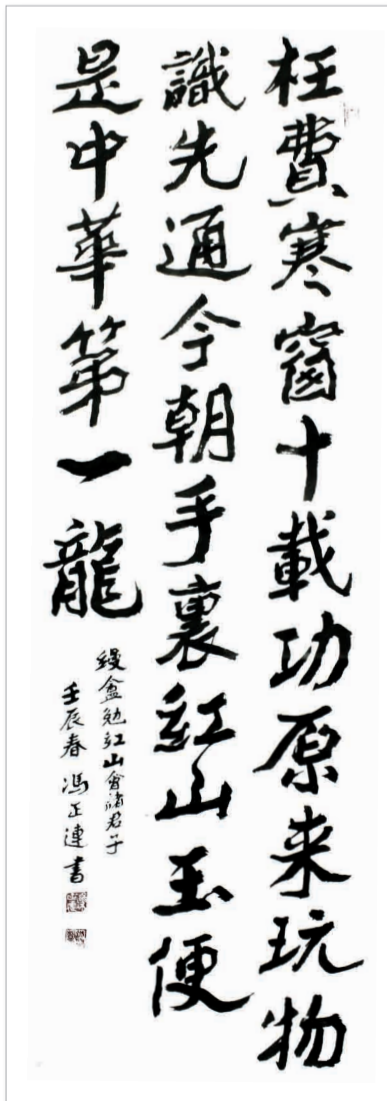 枉費寒窗十載功原来玩物
識先通今朝手裏紅山玉便
是中華第一龍
縵盦勉紅山會諸君子
壬辰春馮正連書